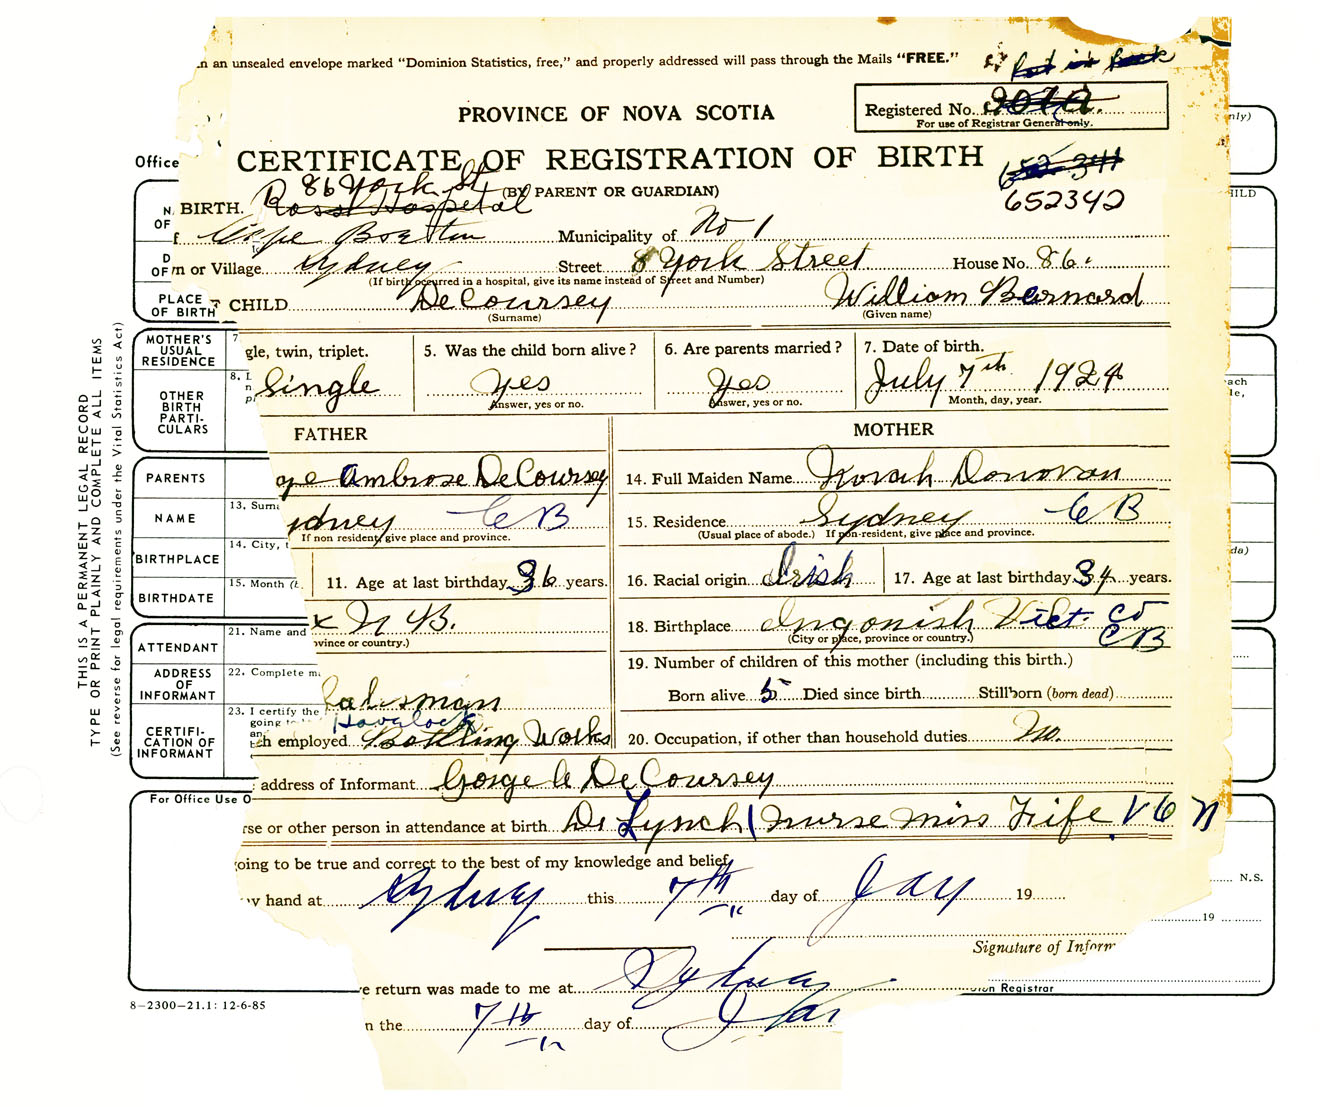 n an unsealed envelope marked "Dominion Statistics, free," and properly addressed will pass through the Mails "FREE."
PROVINCE OF NOVA SCOTIA
Registered No.
For use of Registrar General only.
CERTIFICATE OF REGISTRATION OF BIRTH
(BY PARENT OR GUARDIAN)
652342
86 York St
BIRTH. Ross Hospital
Cape Breton Municipality of No 1
n or Village Sydney Street 8 York Street House No. 86.
(If birth occurred in a hospital, give its name instead of Street and Number)
CHILD DeCoursey William Bernard
(Surname) (Given name)
gle, twin, triplet. 5. Was the child born alive? 6. Are parents married? 7. Date of birth.
Single Yes Yes July 7th 1924
Answer, yes or no. Answer, yes or no. Month, day, year.
FATHER MOTHER
ge Ambrose DeCoursey 14. Full Maiden Name Norah Donovan
ydney CB 15. Residence Sydney CB
If non resident, give place and province. (Usual place of abode.) If non-resident, give place and province.
11. Age at last birthday 36 years. 16. Racial origin Irish 17. Age at last birthday 34 years.
x N B. 18. Birthplace Ingonish Vict. Co CB
vince or country.) (City or place, province or country.)
19. Number of children of this mother (including this birth.)
Salesman Born alive 5 Died since birth Stillborn (born dead)
Havelock
ch employed Bottling Works 20. Occupation, if other than household duties No.
address of Informant Gorge A DeCoursey
rse or other person in attendance at birth Dr Lynch (nurse miss Fife V O N
oing to be true and correct to the best of my knowledge and belief
y hand at Sydney this 7th day of 19
Signature of Inform
e return was made to me at Sydney
n the 7th day of
Office
N
OF
D
OF
PLACE
OF BIRTH
MOTHER'S
USUAL
RESIDENCE
7.
OTHER
BIRTH
PARTI-
CULARS
8.
PARENTS
NAME
13. Surn
BIRTHPLACE
14. City,
BIRTHDATE
15. Month
ATTENDANT
21. Name and
ADDRESS
OF
INFORMANT
22. Complete m
CERTIFI-
CATION OF
INFORMANT
23. I certify the
going to
an
For Office Use O
THIS IS A PERMANENT LEGAL RECORD
TYPE OR PRINT PLAINLY AND COMPLETE ALL ITEMS
(See reverse for legal requirements under the Vital Statistics Act)
8–2300–21.1: 12-6-85
nly)
HILD
each
le,
da)
N.S.
19
ion Registrar